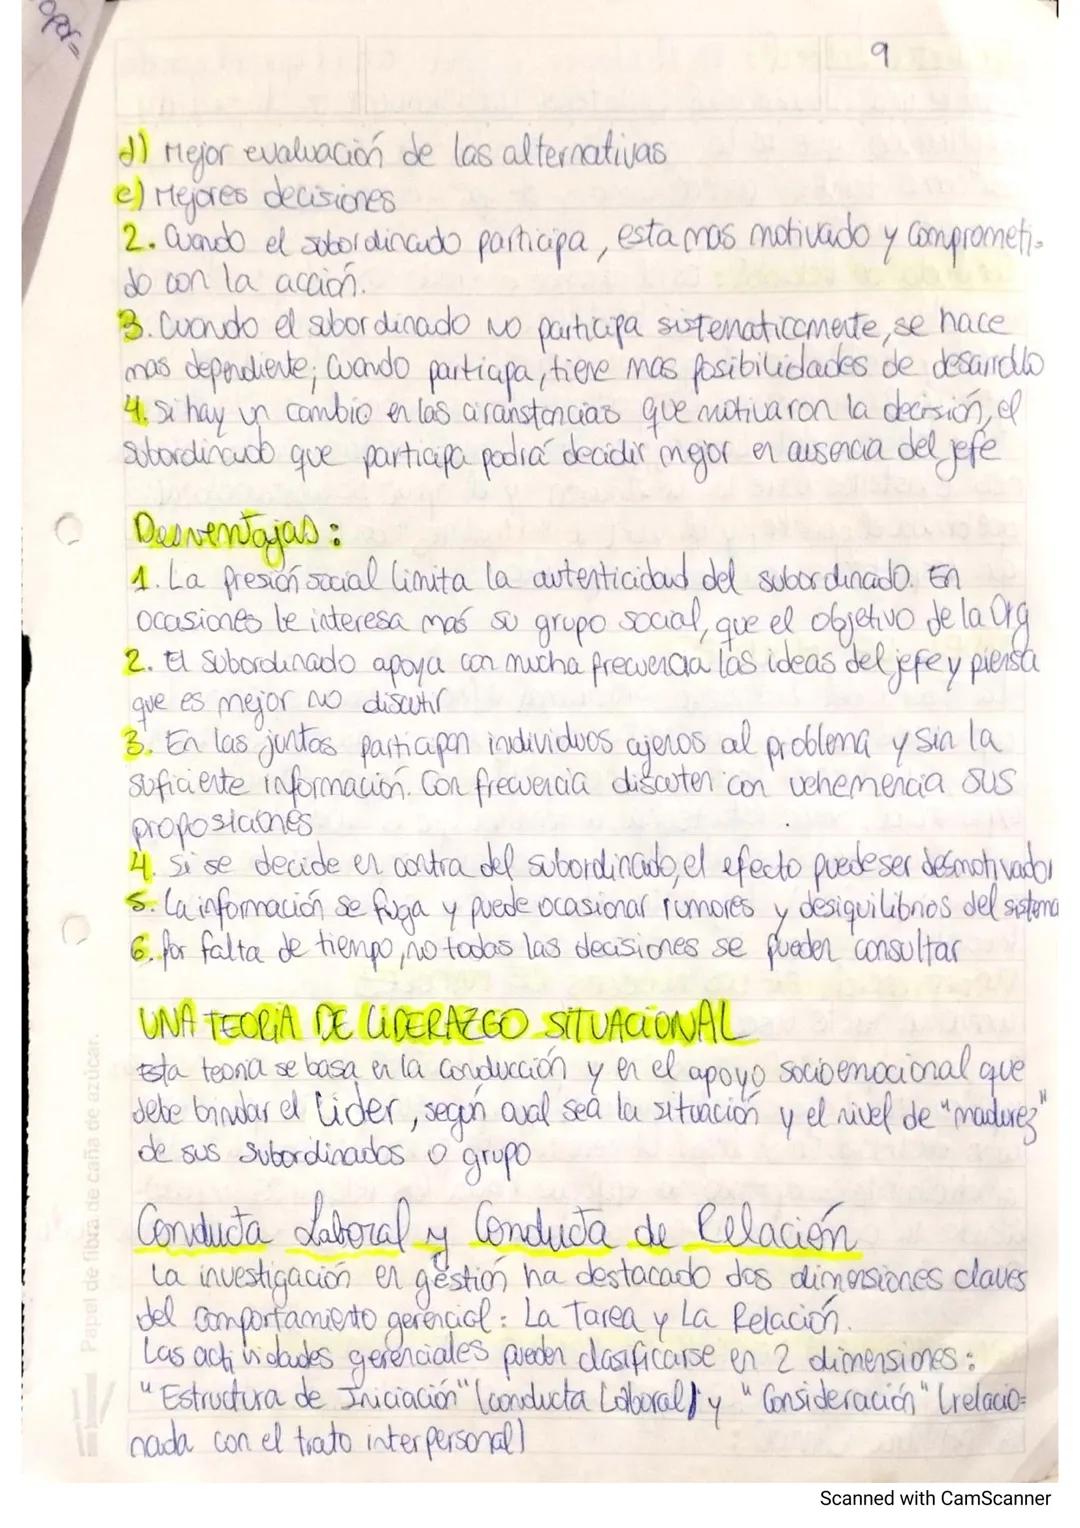 9
d) Mejor evaluación de las alternativas
e) Mejores decisiones
2. Cuando el subordinado participa, esta mas motivado y comprometi=
do con la acción.
3. Cuando el subordinado no participa sistematicamente, se hace
mas dependiente; cuando participa, tiene mas posibilidades de desarrollo
4. Si hay un cambio en las circunstancias que motivaron la decisión, el
subordinado que participa podrá decidir mejor en ausencia del jefe
Desventajas:
1. La presión social limita la autenticidad del subordinado. En
ocasiones le interesa más su grupo social, que el objetivo de la Org
2. El subordinado apoya con mucha frecuencia las ideas del jefe y piensa
que es mejor no discutir
3. En las juntas participan individuos ajenos al problema y sin la
suficiente información. Con frecuencia discuten con vehemencia sus
proposiciones
4. Si se decide en contra del subordinado, el efecto puede ser desmotivador
5. La información se fuga y puede ocasionar rumores y desiquilibrios del sistema
6. Por falta de tiempo, no todas las decisiones se pueden consultar
UNA TEORIA DE LIDERAZGO SITUACIONAL
Esta teoria se basa en la conducción y en el apoyo socioemocional que
debe brindar el Lider, según cual sea la situación y el nivel de "madurez"
de sus subordinados o grupo
Conducta Laboral y Conducta de Relación
La investigación en gestión ha destacado dos dimensiones claves
del comportamiento gerencial: La Tarea y La Relación.
Las actividades gerenciales pueden clasificarse en 2 dimensiones:
"Estructura de Iniciación" (conducta Laboral) y "Consideración" (relacio=
nada con el trato interpersonal)
Papel de fibra de caña de azúcar.
Scanned with CamScanner